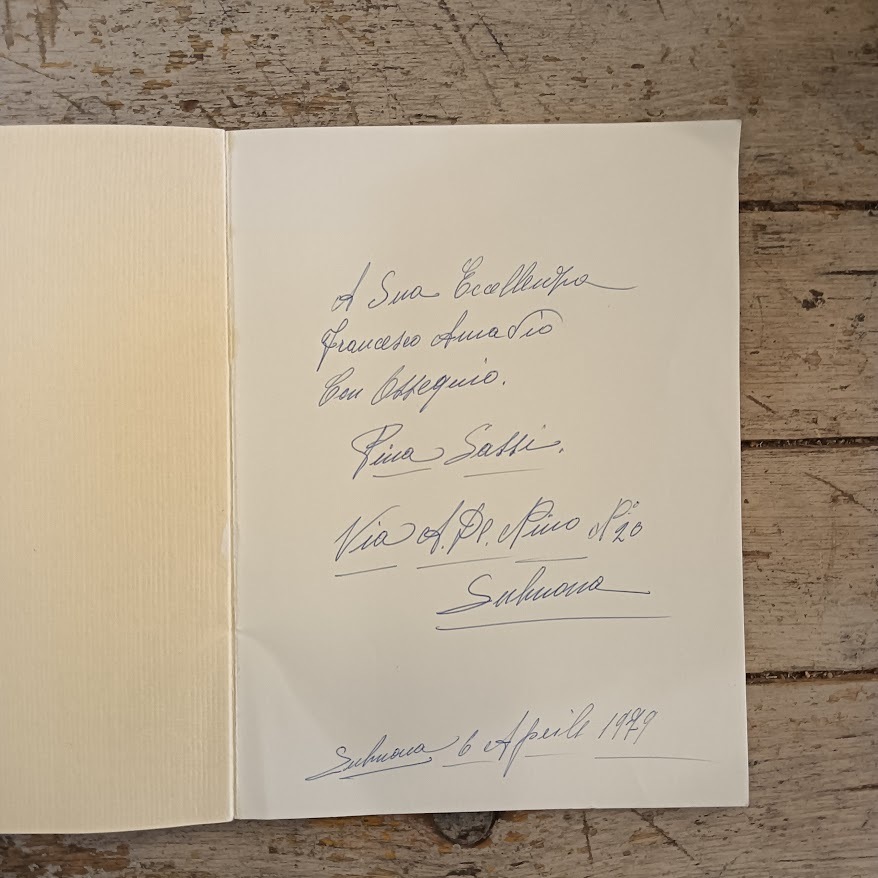 A Sua Eccellenza
Francesco Amadio
Con Ossequio.
Pina Sassi.
Via A. De. Nino N° 20
Sulmona
Sulmona 6 Aprile 1979